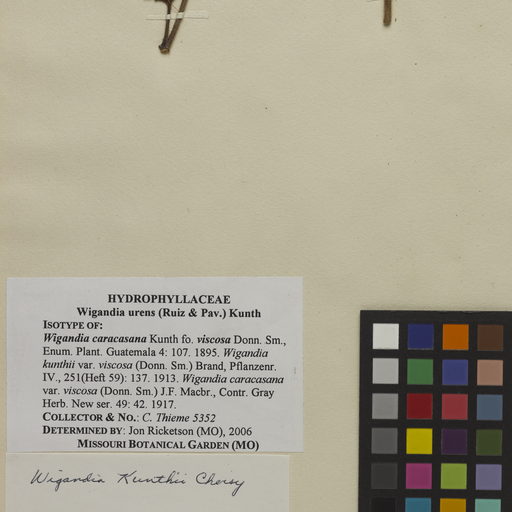 HYDROPHYLLACEAE
Wigandia urens (Ruiz & Pav.) Kunth
ISOTYPE OF:
Wigandia caracasana Kunth fo. viscosa Donn. Sm.,
Enum. Plant. Guatemala 4: 107. 1895. Wigandia
kunthii var. viscosa (Donn. Sm.) Brand, Pflanzenr.
IV., 251(Heft 59): 137. 1913. Wigandia caracasana
var. viscosa (Donn. Sm.) J.F. Macbr., Contr. Gray
Herb. New ser. 49: 42. 1917.
COLLECTOR & NO.: C. Thieme 5352
DETERMINED BY: Jon Ricketson (MO), 2006
MISSOURI BOTANICAL GARDEN (MO)
Wigandia Kunthii Choisy